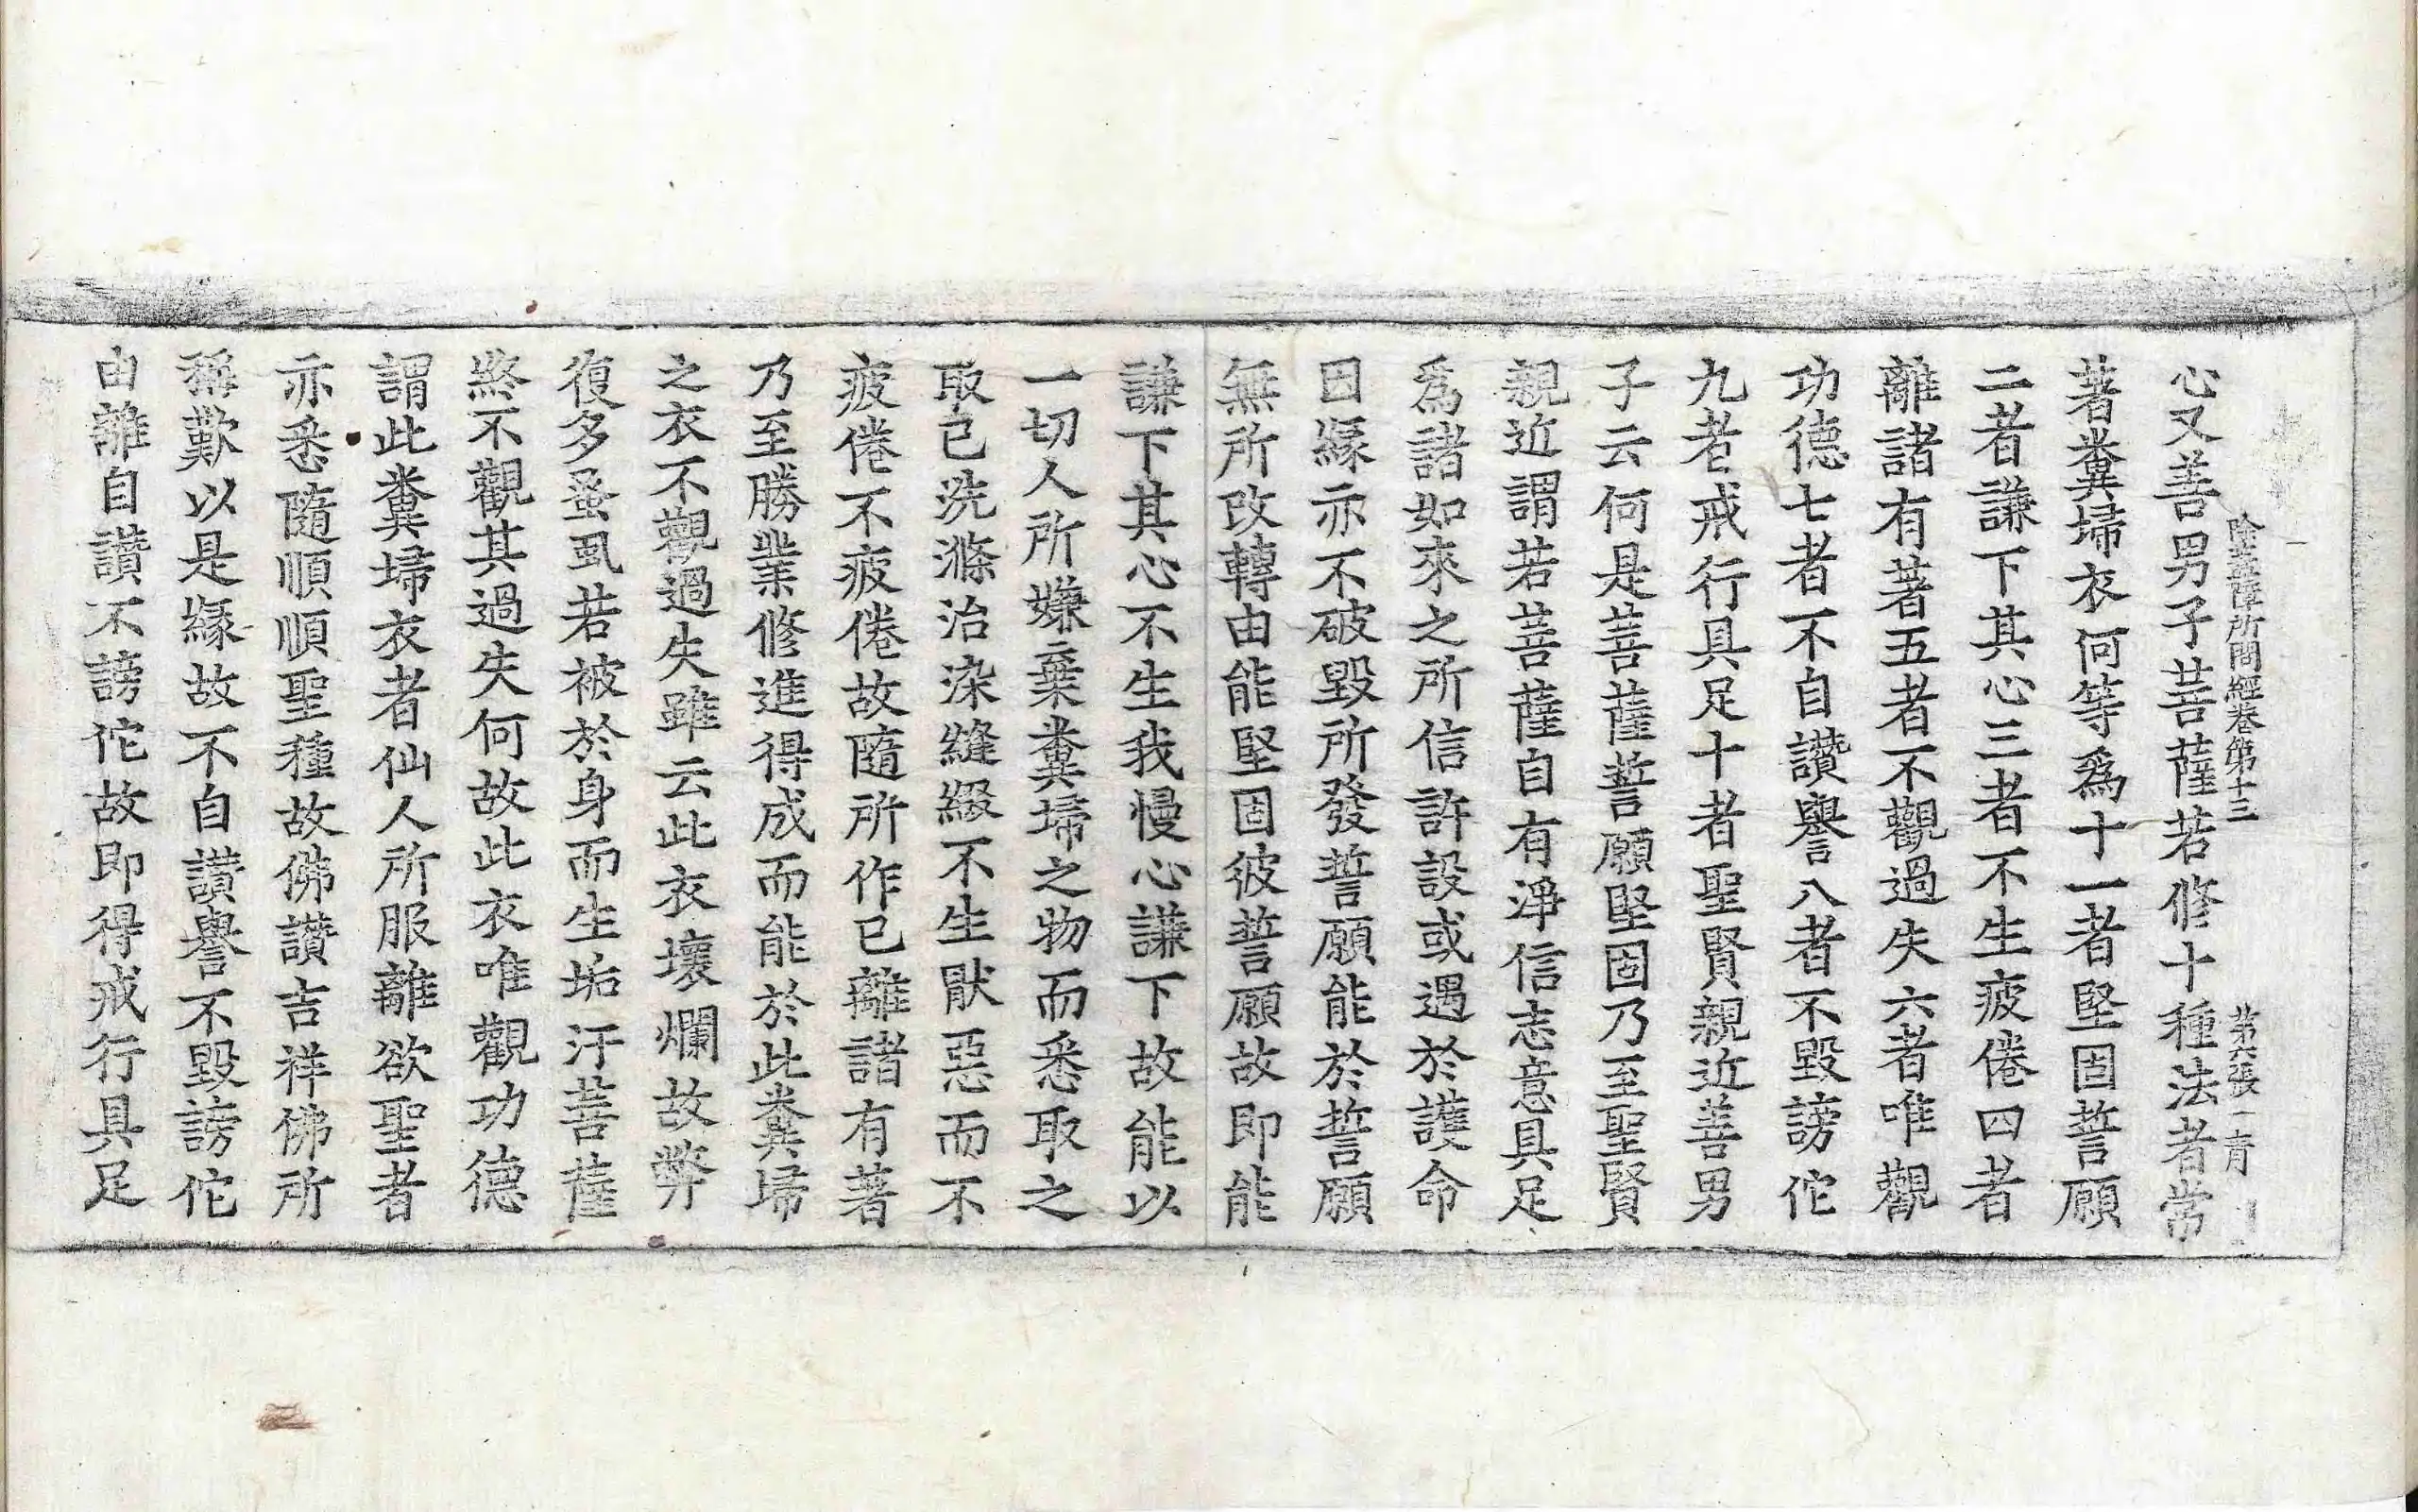 除蓋障所問經卷第十三　第六張　青
心又善男子菩薩若修十種法者常
著糞掃衣何等為十一者堅固誓願
二者謙下其心三者不生疲倦四者
離諸有著五者不觀過失六者唯觀
功德七者不自讚譽八者不毀謗佗
九者戒行具足十者聖賢親近善男
子云何是菩薩誓願堅固乃至聖賢
親近謂若菩薩自有淨信志意具足
爲諸如來之所信許設或遇於護命
因緣亦不破毀所發誓願能於誓願
無所改轉由能堅固彼誓願故即能
謙下其心不生我慢心謙下故能以
一切人所嫌棄糞掃之物而悉取之
取已洗滌治染縫綴不生厭惡而不
疲倦不疲倦故隨所作已離諸有著
乃至勝業修進得成而能於此糞掃
之衣不觀過失雖云此衣壞爛故弊
復多蚤虱若被於身而生垢汙菩薩
終不觀其過失何故此衣唯觀功德
謂此糞掃衣者仙人所服離欲聖者
亦悉隨順順聖種故佛讚吉祥佛所
稱歎以是緣故不自讚譽不毀謗佗
由離自讚不謗佗故即得戒行具足